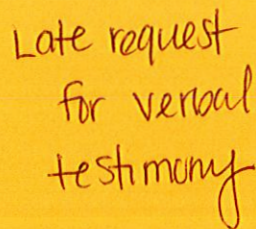 Late request
for verbal
testimony